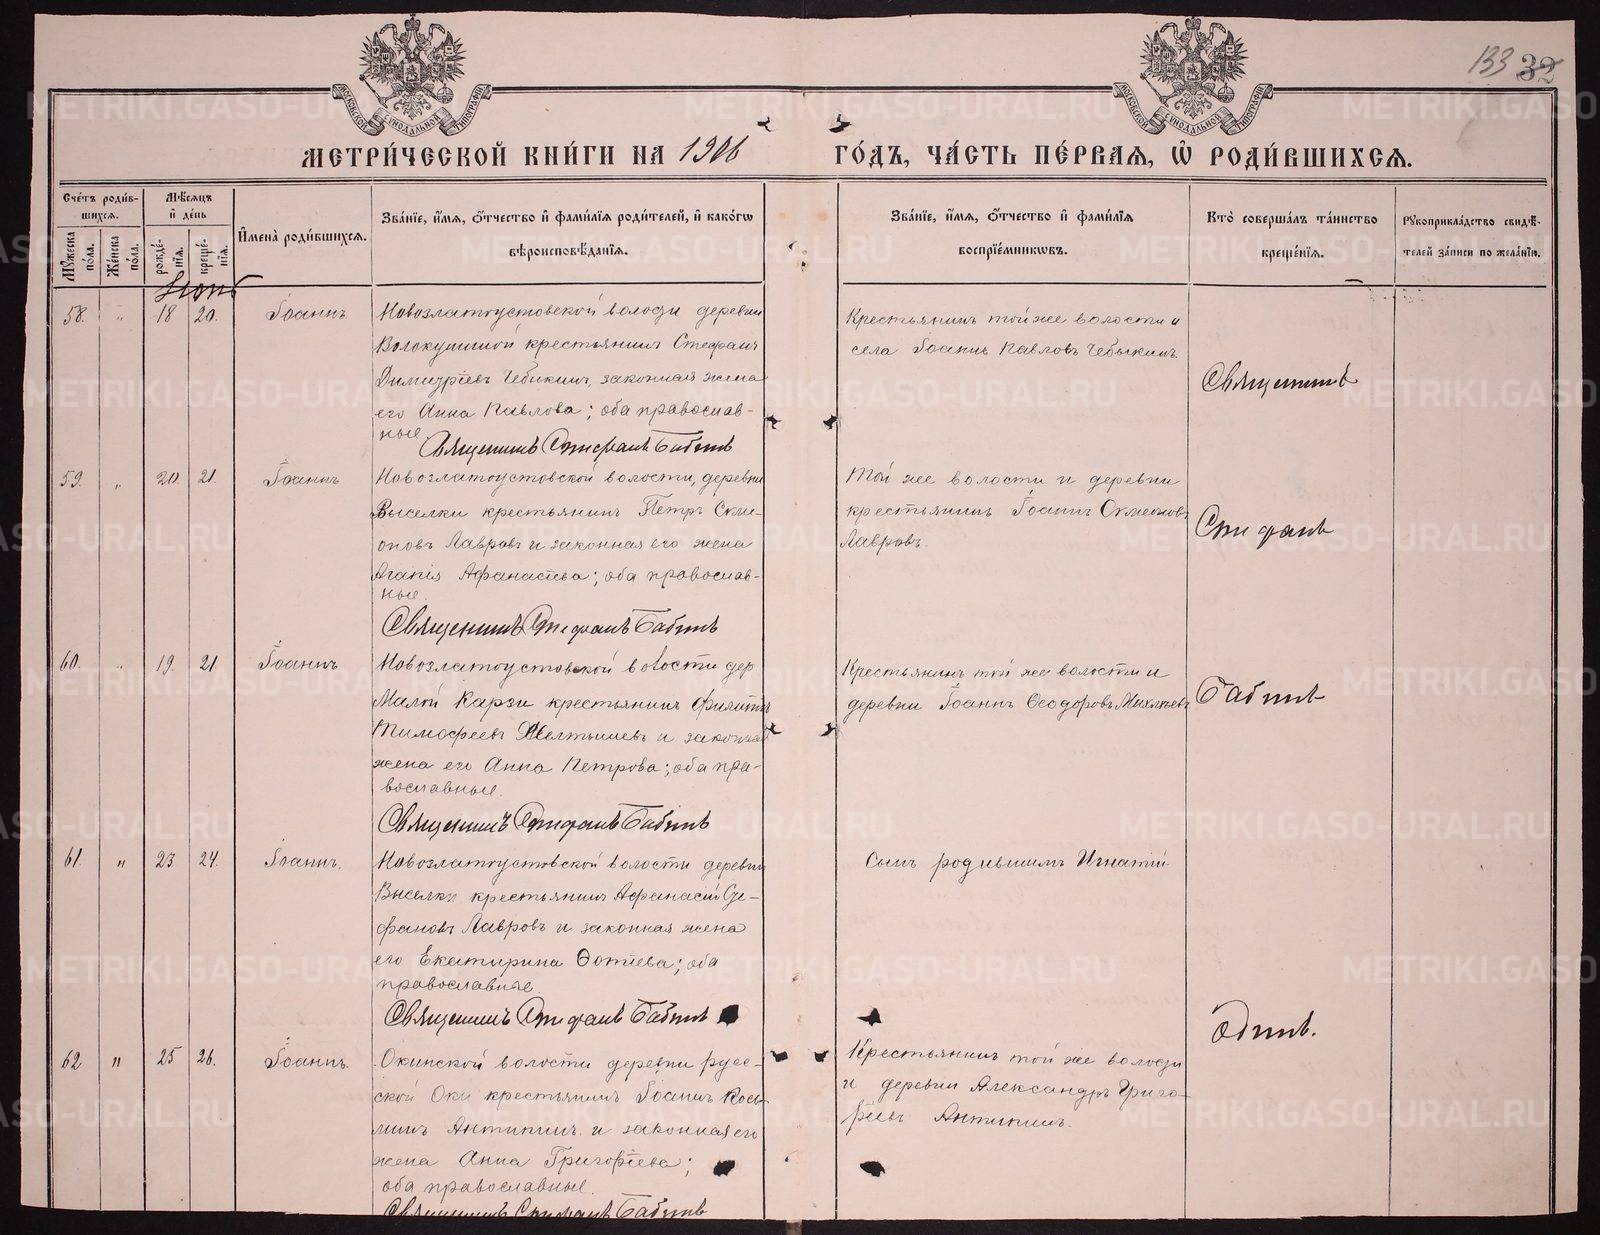 133 32
МОСКОВСКОЙ СѴНОДАЛЬНОЙ ТИПОГРАФІИ
МОСКОВСКОЙ СѴНОДАЛЬНОЙ ТИПОГРАФІИ
МЕТРИ́ЧЕСКОЙ КНИ́ГИ НА 1906 ГО́ДЪ, ЧА́СТЬ ПЕ́РВАЯ, Ѿ РОДИ́ВШИХСЯ.
Сче́тъ роди́в-
шихся.
Му́жеска по́ла.
Же́нска по́ла.
Мѣ́сяцъ
и де́нь
рожде́нія.
креще́нія.
Имена̀ роди́вшихся.
Зва́ніе, и́мя, о́тчество и фами́лія роди́телей, и како́гѡ
вѣроисповѣ́данія.
Зва́ніе, и́мя, о́тчество и фами́лія
воспріе́мниковъ.
Кто̀ соверша́лъ та́инство
креще́нія.
Рукоприкла́дство свидѣ́-
телей за́писи по жела́нію.
Іюнь
58. " 18 20. Іоаннъ
Новозлатоустовской волости деревни
крестьянинъ Стефанъ
Димитріевъ Чебыкинъ, законная жена
его Анна Павлова; оба православ-
ные
Священникъ Стефанъ Бабинъ
Крестьянинъ той же волости и
села Іоаннъ Павловъ Чебыкинъ
Священникъ
59. " 20 21. Іоаннъ
Новозлатоустовской волости, деревни
Выселки крестьянинъ Петръ Симе-
оновъ Лавровъ и законная его жена
Агапія Афанасьева; оба православ-
ные.
Священникъ Стефанъ Бабинъ
Той же волости и деревни
крестьянинъ Іоаннъ Симеоновъ
Лавровъ.
Стефанъ
60. " 19. 21 Іоаннъ
Новозлатоустовской волости дер.
Малой Карзи крестьянинъ Филиппъ
Тимофеевъ Желтышевъ и законная
жена его Анна Петрова; оба пра-
вославные.
Священникъ Стефанъ Бабинъ
Крестьянинъ той же волости и
деревни Іоаннъ Ѳеодоровъ
Бабинъ
61. " 23 24. Іоаннъ.
Новозлатоустовской волости деревни
Выселки крестьянинъ Афанасій Сте-
фановъ Лавровъ и законная жена
его Екатерина Фотіева; оба
православные.
Священникъ Стефанъ Бабинъ
Сынъ родившимъ Игнатій
Одинъ.
62 " 25 26. Іоаннъ.
Окинской волости деревни рус-
ской Оки крестьянинъ Іоаннъ Кось-
минъ Антипинъ и законная его
жена Анна Григоріева;
оба православные.
Священникъ Стефанъ Бабинъ
Крестьянинъ той же волости
и деревни Александръ Григо-
ріевъ Антипинъ.
METRIKI.GASO-URAL.RU